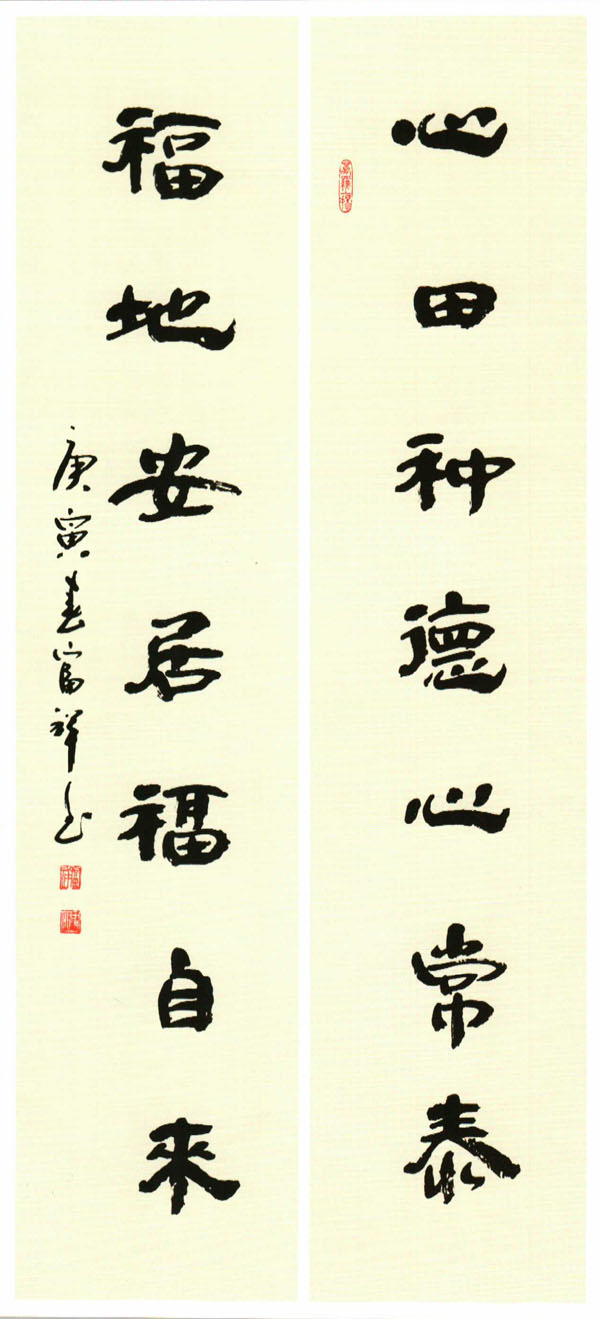 心田种德心常泰
福地安居福自來
庚寅春富祥书